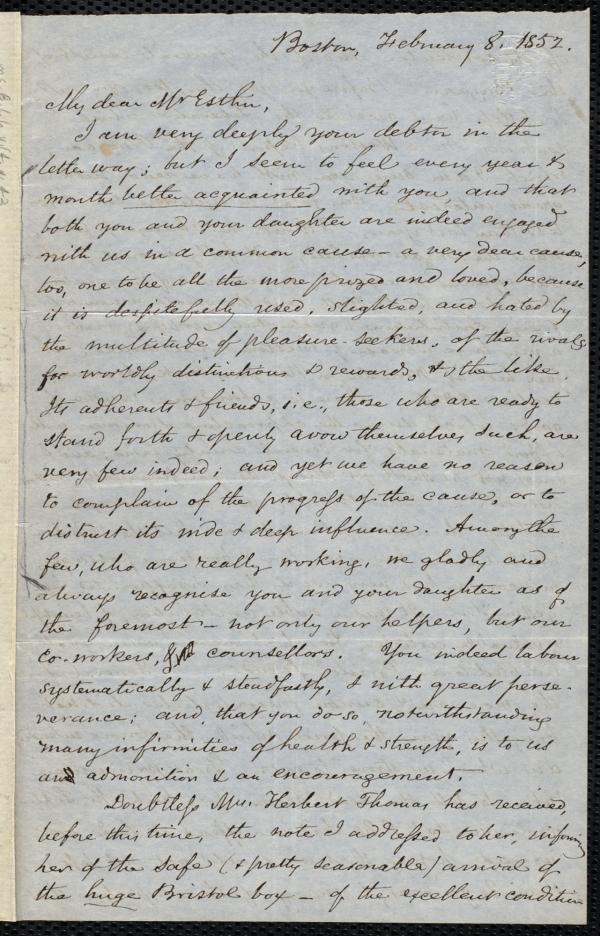 Boston, February 8, 1852.
My dear Mr Estlin,
I am very deeply your debtor in the
letter way; but I seem to feel every year &
month better acquainted with you, and that
both you and your daughter are indeed engaged
with us in a common cause – a very dear cause,
too, one to be all the more prized and loved, because
it is despitefully used, slighted, and hated by
the multitude of pleasure-seekers, of the rivals
for worldly distinctions & rewards, & the like.
Its adherents & friends, i.e., those who are ready to
stand forth & openly avow themselves such, are
very few indeed; and yet we have no reason
to complain of the progress of the cause, or to
distrust its wide & deep influence. Among the
few, who are really working, we gladly and
always recognise you and your daughter as of
the foremost – not only our helpers, but our
co-workers, & counsellors. You indeed labour
systematically & steadfastly, & with great perse-
verance; and, that you do so, notwithstanding
many infirmities of health & strength, is to us
an admonition & an encouragement.
Doubtless Mrs. Herbert Thomas has received,
before this time, the note I addressed to her, informing
her of the safe (& pretty seasonable) arrival of
the huge Bristol box – of the excellent condition